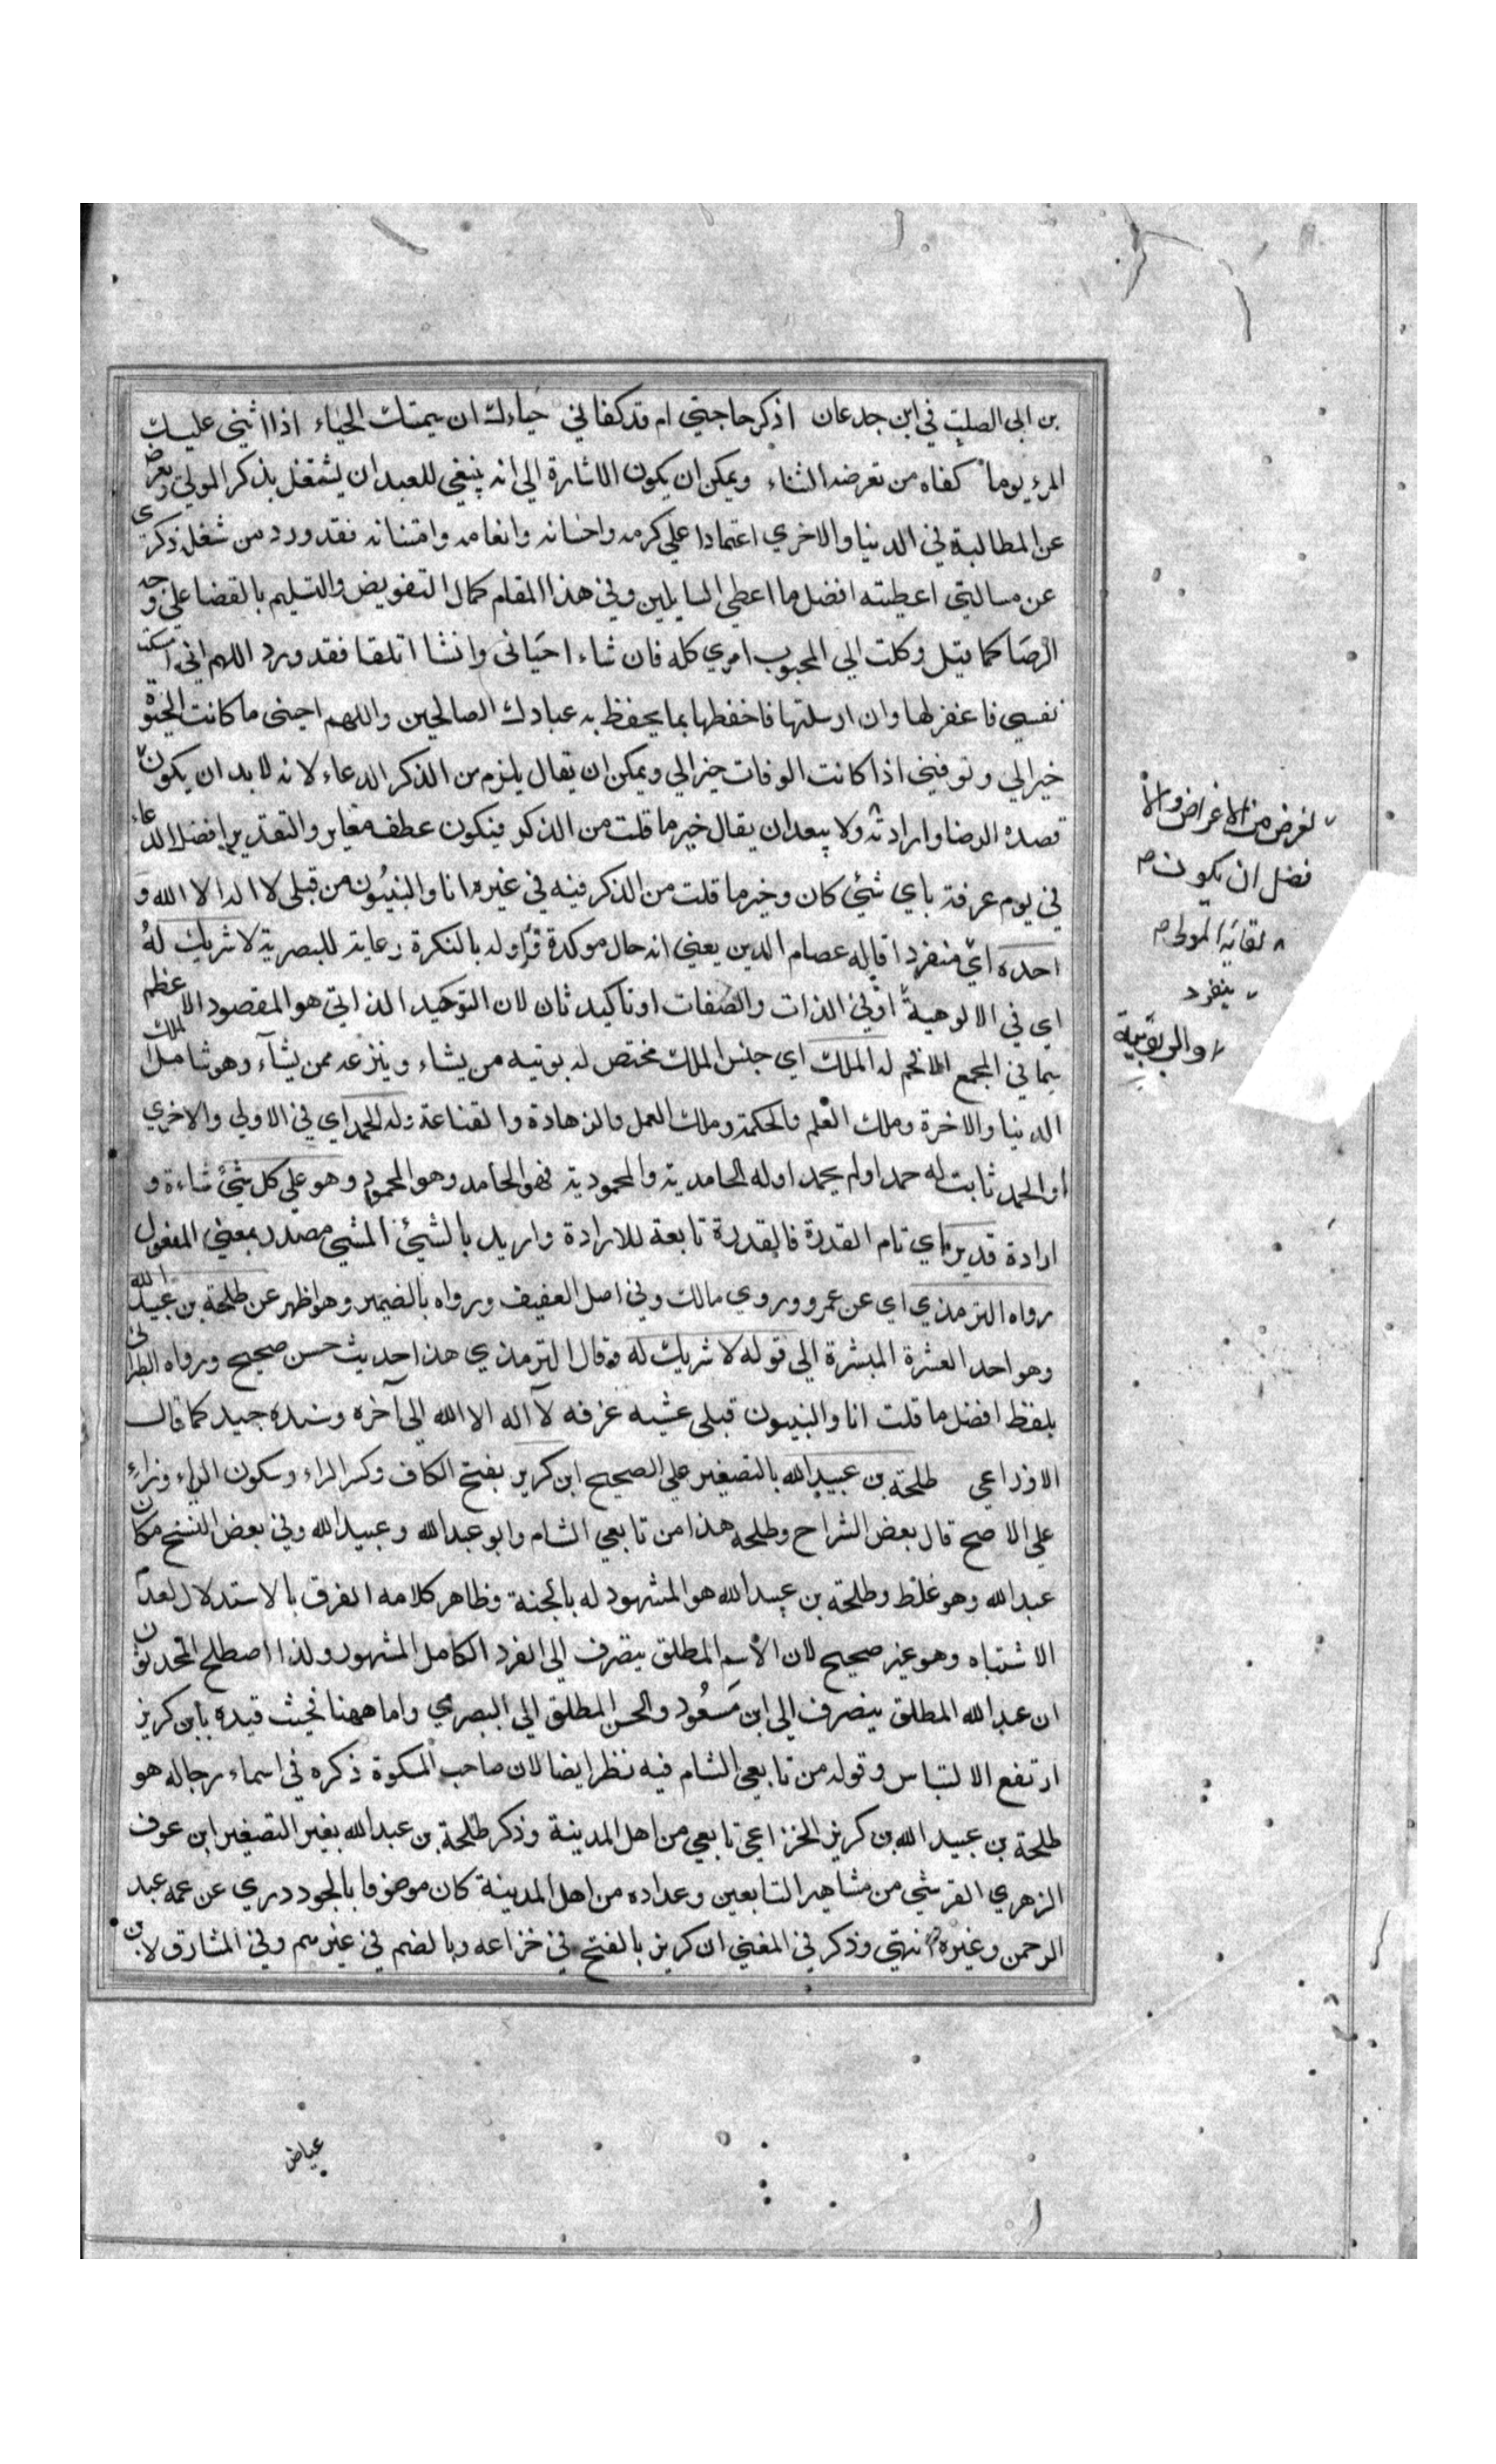 بن ابي الصلت في ابن جدعان اذكر حاجتي ام قد كفاني حياءك ان شيمتك الحياء اذا اثني عليك
المرء يوما كفاه من تعرضه الثناء ويمكن ان يكون الاشارة الي انه ينبغي للعبد ان يشتغل بذكر المولي ويعرض
عن المطالبة في الدنيا والاخري اعتمادا علي كرمه واحسانه وانعامه وامتنانه فقد ورد من شغله ذكري
عن مسالتي اعطيته افضل ما اعطي السايلين وفي هذا المقام كمال التفويض والتسليم بالقضا علي وجه
الرضا كما قيل وكلت الي المحبوب امري كله فان شاء احياني وانشا اتلفنا فقد ورد اللهم اني امسكت
نفسي فاغفر لها وان ارسلتها فاحفظها بما يحفظ به عبادك الصالحين واللهم احيني ما كانت الحيوة
خيرا لي وتوفني اذا كانت الوفات خيرا لي ويمكن ان يقال يلزم من الذكر الدعاء لانه لابد ان يكون
قصده الرضا وارادته ولا يبعد ان يقال خير ما قلت من الذكر فيكون عطف مغاير والتقدير افضل الدعاء
في يوم عرفة باي شئ كان وخير ما قلت من الذكر فيه في غيره انا والنبيون من قبلي لا اله الا الله و
احده اي منفردا قاله عصام الدين يعني انه حال موكدة واوله بالنكرة رعاية للبصرية لا شريك له
اي في الالوهية او في الذات والصفات او تاكيد ثان لان التوحيد الذاتي هو المقصود الاعظم
سيما في المجمع الافخم له الملك اي جنس الملك مختص له يوتيه من يشاء وينزعه ممن يشآء وهو شامل لملك
الدنيا والاخرة وملك العلم والحكمة وملك العمل والزهادة والقناعة وله الحمد اي في الاولي والاخري
او الحمد ثابت له حمد او لم يحمد او له الحامدية والمحمودية فهو الحامد وهو المحمود وهو علي كل شئ شاءه و
اراده قدير اي تام القدرة فالقدرة تابعة للارادة واريد بالشئ المشي مصدر بمعني المفعول
رواه الترمذي اي عن عمرو وروي مالك وفي اصل العفيف ورواه بالضمير وهو اظهر عن طلحة بن عبيد الله
وهو احد العشرة المبشرة الي قوله لا شريك له وقال الترمذي هذا حديث حسن صحيح ورواه الطبراني
بلفظ افضل ما قلت انا والنبيون قبلي عشيه عرفه لآ اله الا الله الي آخره وسنده جيد كما قاله
الاوزاعي طلحة بن عبيد الله بالتصغير علي الصحيح ابن كريز بفتح الكاف وكسر الراء وسكون الياء وزاء
علي الاصح قال بعض الشراح وطلحه هذا من تابعي الشام وابو عبد الله وعبيد الله وفي بعض النسخ مكان
عبد الله وهو غلط وطلحة بن عبيد الله هو المشهود له بالجنة وظاهر كلامه الفرق بالاستدلال لعدم
الاشتباه وهو غير صحيح لان الاسم المطلق يتصرف الي الفرد الكامل المشهور ولذا اصطلح المحدثون
ان عبد الله المطلق ينصرف الي ابن مسعود والحسن المطلق الي البصري واما ههنا فحيث قيده بابن كريز
ارتفع الالتباس وقوله من تابعي الشام فيه نظر ايضا لان صاحب المسكوة ذكره في اسماء رجاله هو
طلحة بن عبيد الله بن كريز الخزاعي تابعي من اهل المدينة وذكر طلحة بن عبد الله بغير التصغير ابن عوف
الزهري القرشي من مشاهير التابعين وعداده من اهل المدينة كان موصوفا بالجود دري عن عمه عبد
الرحمن وغيره انتهي وذكر في المغني ان كريز بالفتح في خزاعه وبالضم في غيرهم وفي المشارق لابن
لغرض من الاغراض والا
فضل ان يكون
لقائه المولي
ينفرد
او الربوبية
عياض